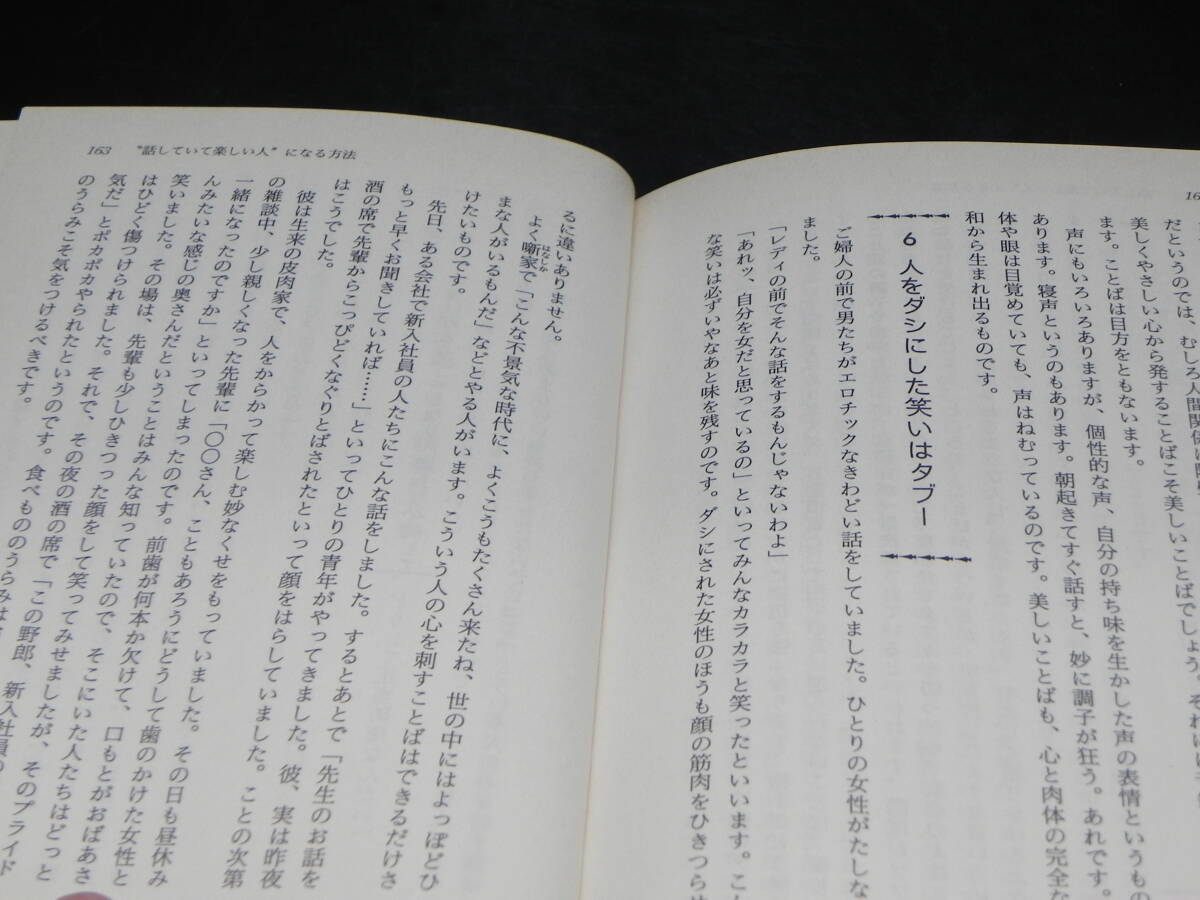 16
だというのでは、むしろ人間関係は
美しくやさしい心から発することばこそ美しいことばでしょう。それ
ます。ことばは目方をともないます。
声にもいろいろありますが、個性的な声、自分の持ち味を生かした声の表情というもの
あります。寝声というのもあります。朝起きてすぐ話すと、妙に調子が狂う。あれです。
体や眼は目覚めていても、声はねむっているのです。美しいことばも、心と肉体の完全な
和から生まれ出るものです。
6 人をダシにした笑いはタブー
ご婦人の前で男たちがエロチックなきわどい話をしていました。ひとりの女性がたしな
ました。
「レディの前でそんな話をするもんじゃないわよ」
「あれッ、自分を女だと思っているの」といってみんなカラカラと笑ったといいます。こん
な笑いは必ずいやなあと味を残すのです。ダシにされた女性のほうも顔の筋肉をひきつらせ
163 “話していて楽しい人”になる方法
るに違いありません。
よく噺家で「こんな不景気な時代に、よくこうもたくさん来たね、世の中にはよっぽどひ
はなしか
まな人がいるもんだ」などとやる人がいます。こういう人の心を刺すことばはできるだけさ
けたいものです。
先日、ある会社で新入社員の人たちにこんな話をしました。するとあとで「先生のお話を
もっと早くお聞きしていれば……」といってひとりの青年がやってきました。彼、実は昨夜
酒の席で先輩からこっぴどくなぐりとばされたといって顔をはらしていました。ことの次第
はこうでした。
彼は生来の皮肉家で、人をからかって楽しむ妙なくせをもっていました。その日も昼休み
の雑談中、少し親しくなった先輩に「〇〇さん、こともあろうにどうして歯のかけた女性と
一緒になったのですか」といってしまったのです。前歯が何本か欠けて、口もとがおばあさ
んみたいな感じの奥さんだということはみんな知っていたので、そこにいた人たちはどっと
笑いました。その場は、先輩も少しひきつった顔をして笑ってみせましたが、そのプライド
はひどく傷つけられました。それで、その夜の酒の席で「この野郎、新入社員の
気だ」とポカポカやられたというのです。食べもののうらみは
のうらみこそ気をつけるべきです。